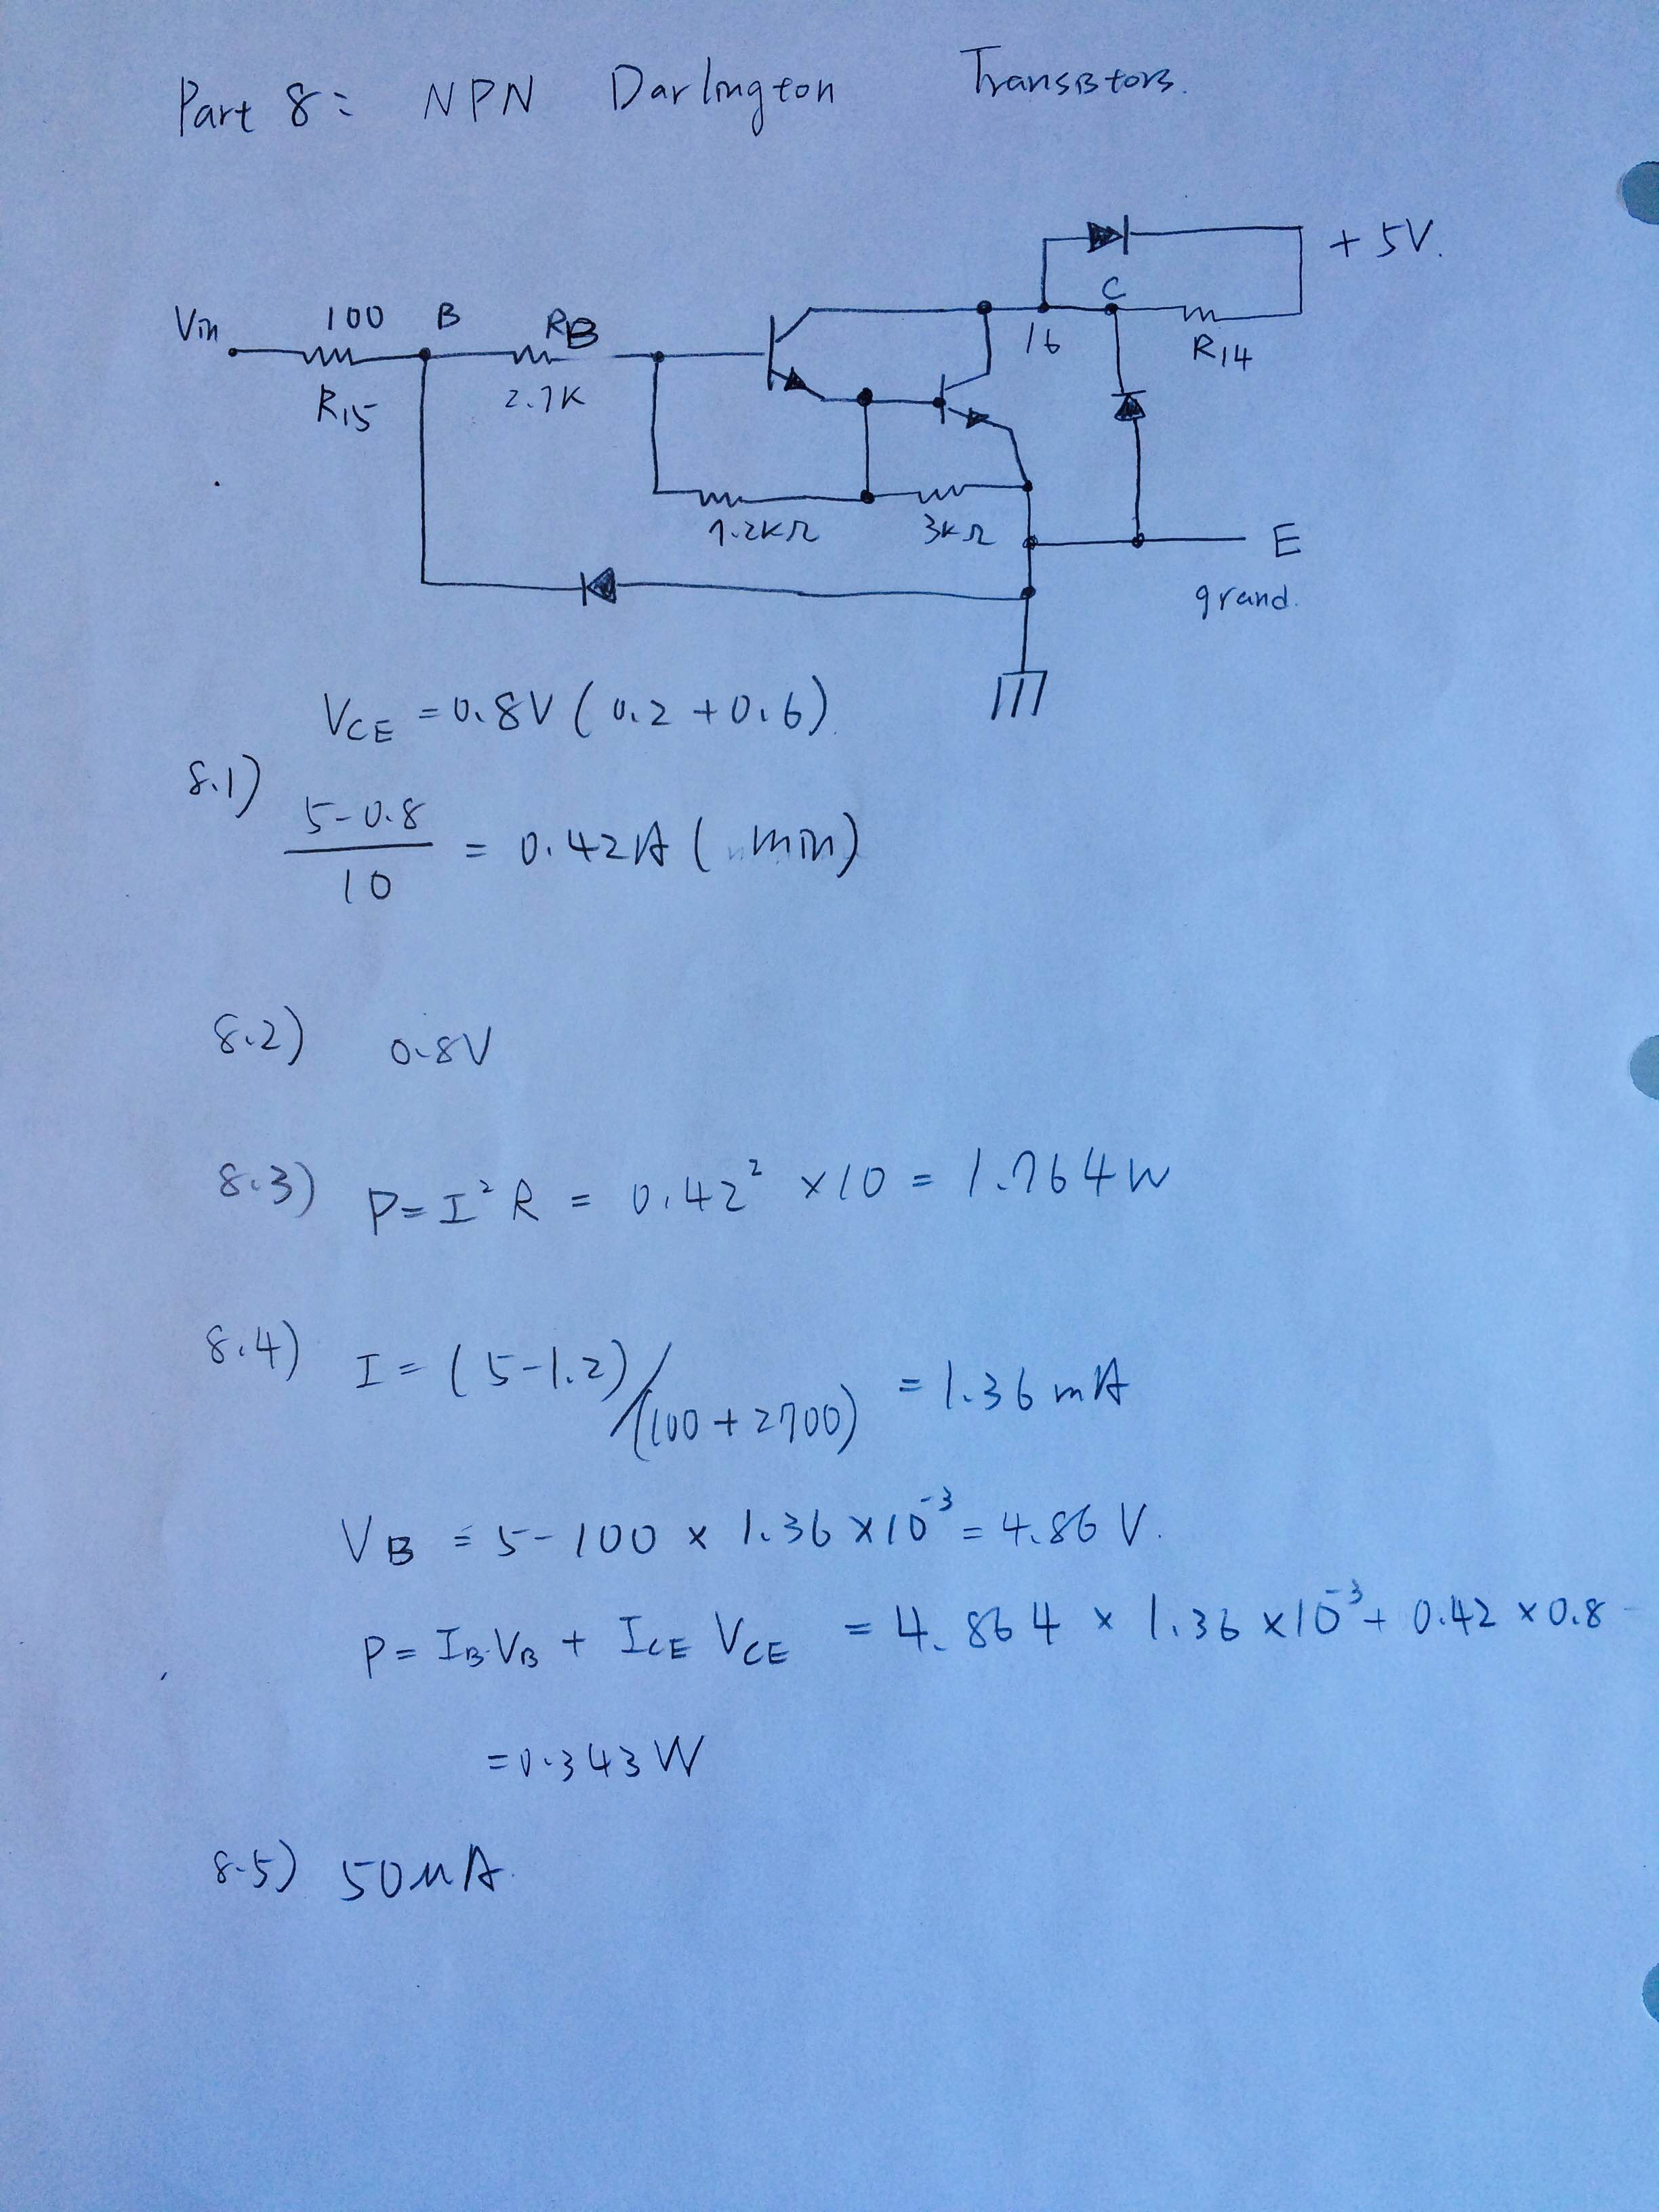 Part 8: NPN Darlington Transistors.
+ 5V.
Vin 100 B RB C
R15 2.7K 16 R14
7.2KΩ 3KΩ E
grand.
VCE = 0.8V ( 0.2 + 0.6)
8.1) 5-0.8 / 10 = 0.42A ( min)
8.2) 0.8V
8.3) P = I² R = 0.42² × 10 = 1.764W
8.4) I = ( 5-1.2) / (100 + 2700) = 1.36 mA
VB = 5 - 100 × 1.36 × 10⁻³ = 4.86 V.
P = IB·VB + ICE VCE = 4.864 × 1.36 × 10⁻³ + 0.42 × 0.8
= 0.343 W
8.5) 50uA.